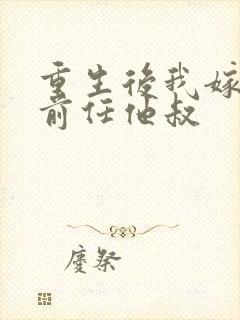 重生後我嫁
前任他叔
慶祭